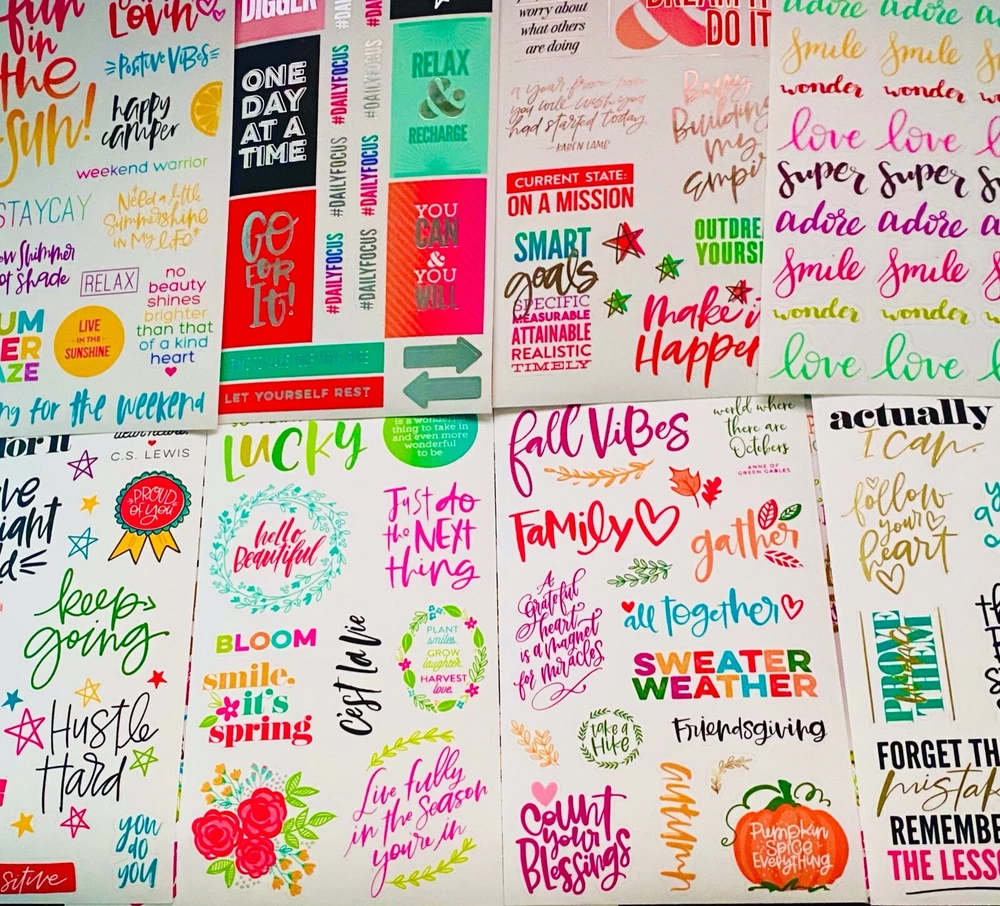 fun
in
the
sun!
Lovin'
Positive Vibes
happy
camper
weekend warrior
STAYCAY
Need a little
Summershine
in My life
Shimmer
not shade
RELAX
no
beauty
shines
brighter
than that
of a kind
heart
LIVE
IN THE
SUNSHINE
for the weekend
DIGGER
ONE
DAY
AT A
TIME
GO
FOR
It!
#DAILYFOCUS
#DAILYFOCUS
#DAILYFOCUS
#DAILYFOCUS
#DAILYFOCUS
#DAILYFOCUS
RELAX
&
RECHARGE
YOU
CAN
&
YOU
WILL
LET YOURSELF REST
worry about
what others
are doing
DREAM IT
&
DO IT
a year from now
you will wish you
had started today.
-KAREN LAMB
Busy
Building
my
Empi
CURRENT STATE:
ON A MISSION
SMART
goals
SPECIFIC
MEASURABLE
ATTAINABLE
REALISTIC
TIMELY
OUTDRE
YOURSE
Make i
Happen
adore adore
Smile Smile
wonder wonder
love love
Super Super
adore adore
Smile Smile
wonder wonder
love love
for it
C.S. LEWIS
PROUD
of you
keep
going
Hustle
Hard
you
do
you
LUCKY
is a wonderful
thing to take in
and even more
wonderful
to be
hello
Beautiful
Just do
the NEXT
thing
BLOOM
smile.
it's
spring
C'est La Vie
PLANT
smiles.
GROW
laughter.
HARVEST
love.
Live fully
in the Season
you're in
fall ViBes
world where
there are
Octobers
ANNE OF
GREEN GABLES
Family
gather
A
Grateful
heart
is a magnet
for miracles
all together
SWEATER
WEATHER
take a
Hike
Friendsgiving
Count
your
Blessings
autumn
Pumpkin
Spice
Everything
actually
I can.
follow
your
heart
PROVE
them
THEM
FORGET TH
mistak
REMEMBE
THE LESSO